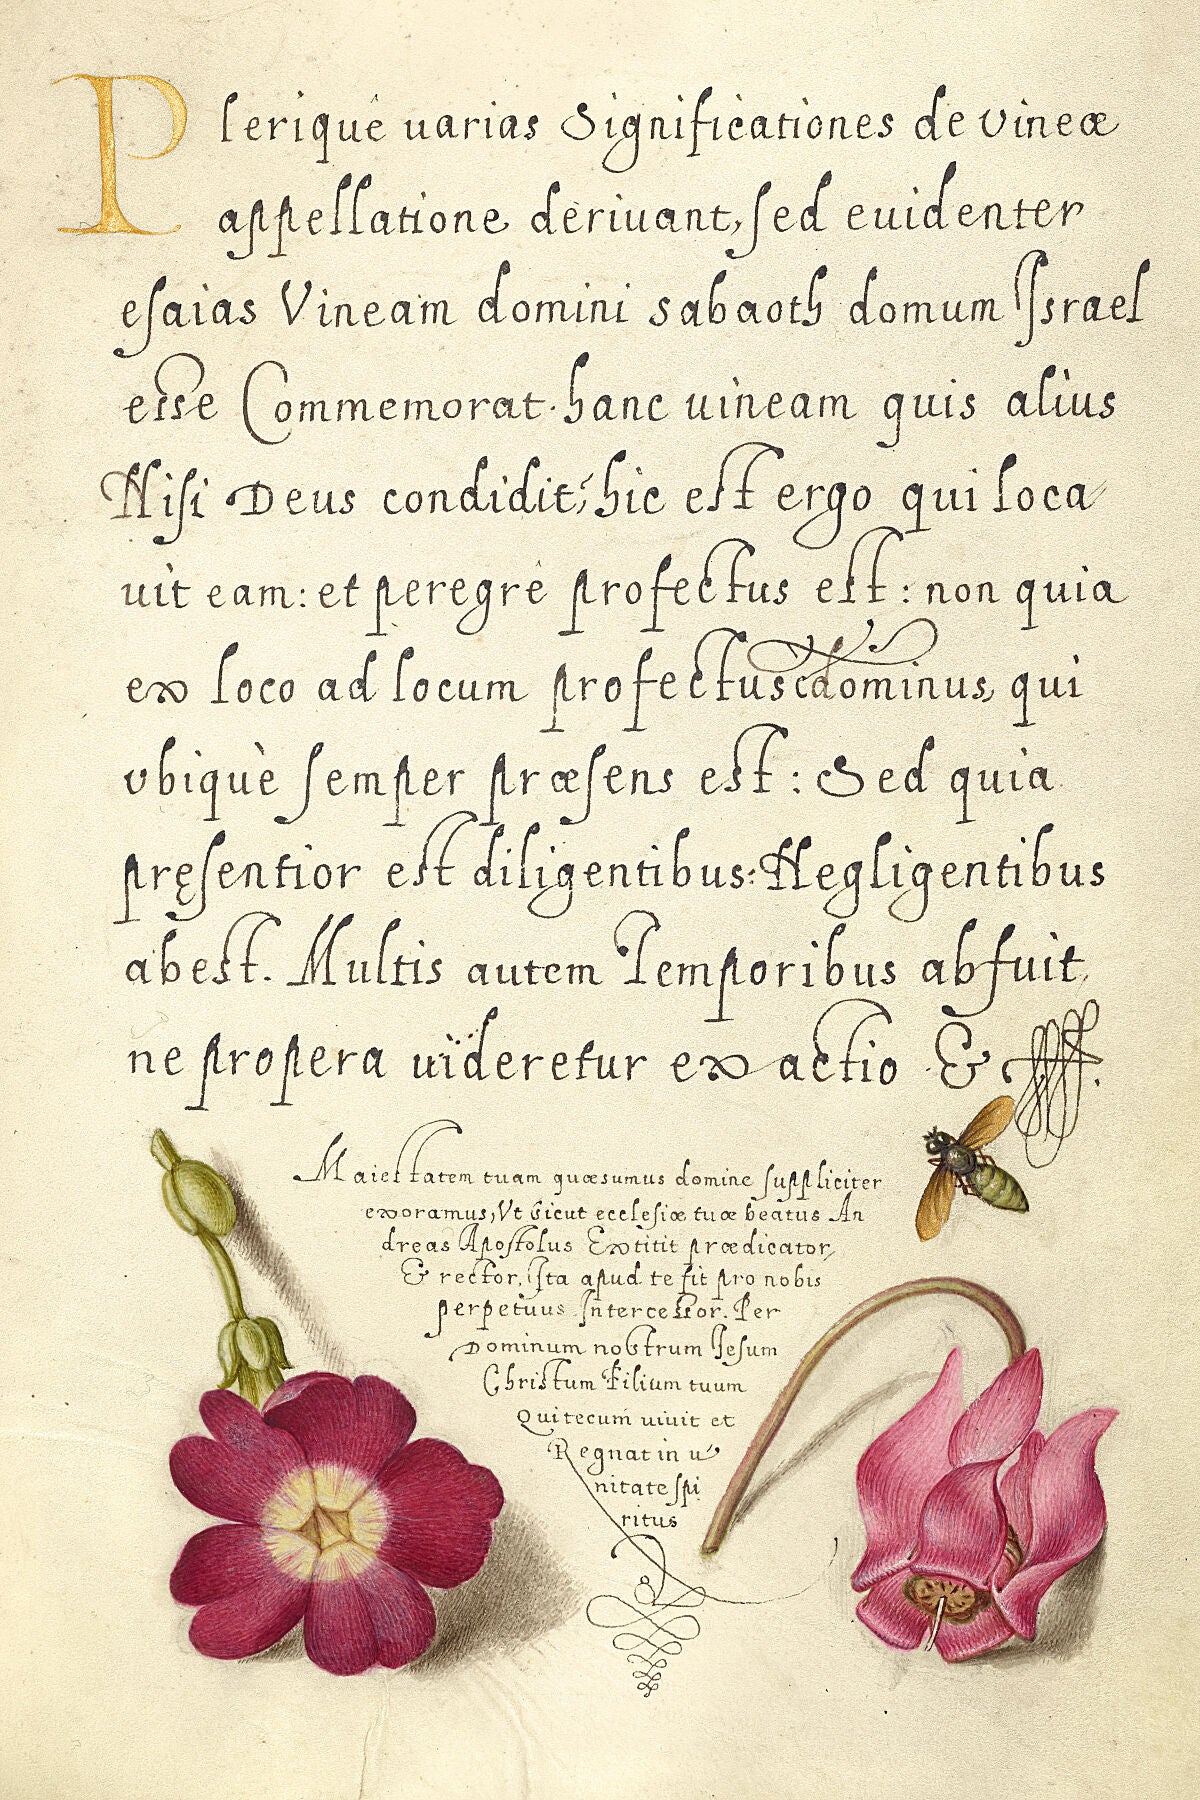 Pleriquè uarias Significationes de vineæ
appellatione deriuant, sed euidenter
esaias Vineam domini sabaoth domum Israel
esse Commemorat. hanc uineam quis alius
Nisi Deus condidit, hic est ergo qui loca
uit eam: et peregrè profectus est: non quia
ex loco ad locum profectus dominus, qui
vbiquè semper præsens est: Sed quia
pręsentior est diligentibus: Negligentibus
abest. Multis autem Temporibus abfuit,
ne propera uideretur exactio &
Maiestatem tuam quæsumus domine suppliciter
exoramus, Vt sicut ecclesiæ tuæ beatus An
dreas Apostolus Extitit prædicator,
& rector, ista apud te sit pro nobis
perpetuus Intercessor. Per
Dominum nostrum Iesum
Christum Filium tuum
Qui tecum uiuit et
Regnat in u
nitate spi
ritus